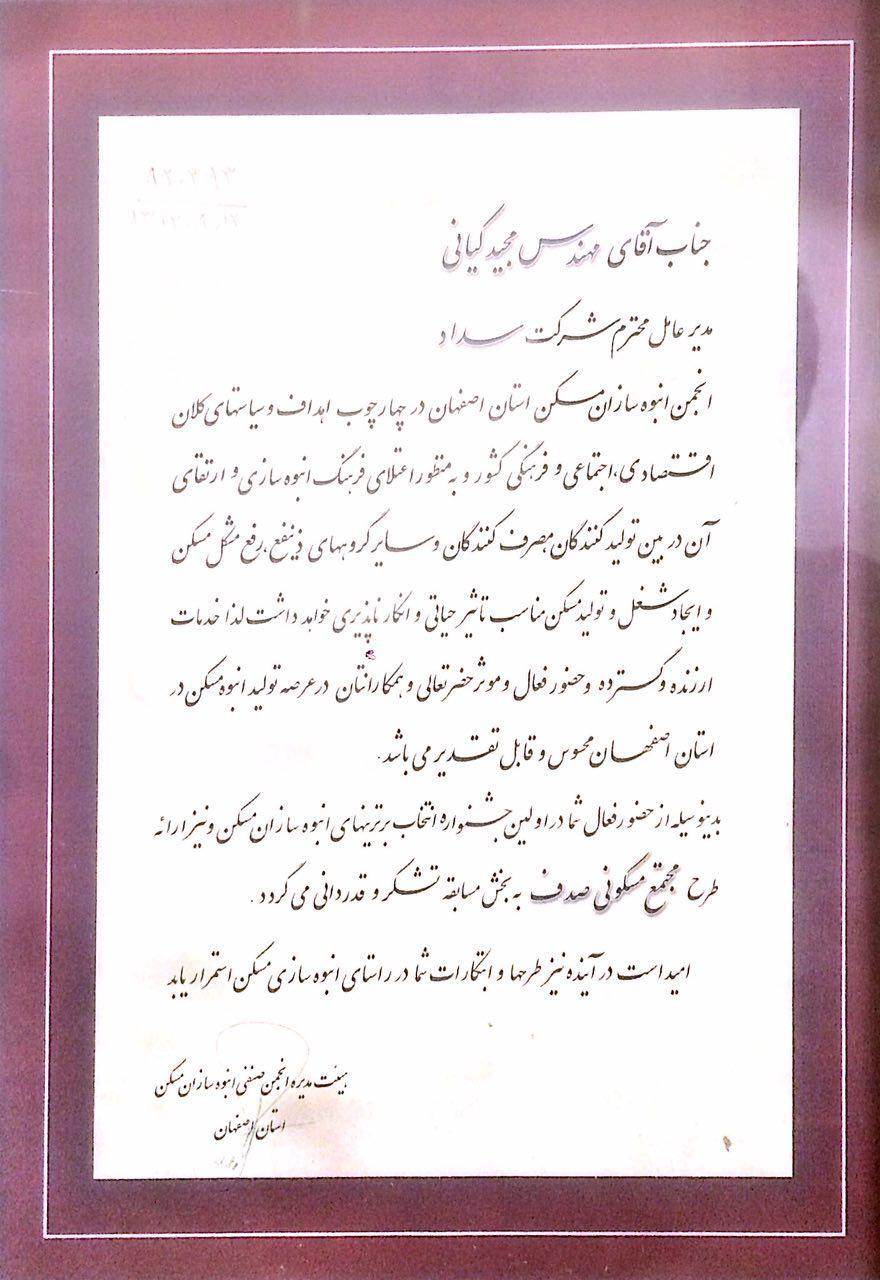 جناب آقای مهندس مجید کیانی
مدیر عامل محترم شرکت سداد
انجمن انبوه سازان مسکن استان اصفهان در چهارچوب اهداف و سیاستهای کلان
اقتصادی، اجتماعی و فرهنگی کشور و به منظور اعتلای فرهنگ انبوه سازی و ارتقای
آن در بین تولید کنندگان، مصرف کنندگان و سایر گروههای ذینفع، رفع مشکل مسکن
و ایجاد شغل و تولید مسکن مناسب تاثیر حیاتی و انکار ناپذیری خواهد داشت لذا خدمات
ارزنده و گسترده و حضور فعال و موثر حضرتعالی و همکارانتان در عرصه تولید انبوه مسکن در
استان اصفهان محسوس و قابل تقدیر می باشد.
بدینوسیله از حضور فعال شما در اولین جشنواره انتخاب برترینهای انبوه سازان مسکن و نیز ارائه
طرح مجتمع مسکونی صدف به بخش مسابقه تشکر و قدردانی می گردد.
امید است در آینده نیز طرحها و ابتکارات شما در راستای انبوه سازی مسکن استمرار یابد
هیئت مدیره انجمن صنفی انبوه سازان مسکن
استان اصفهان